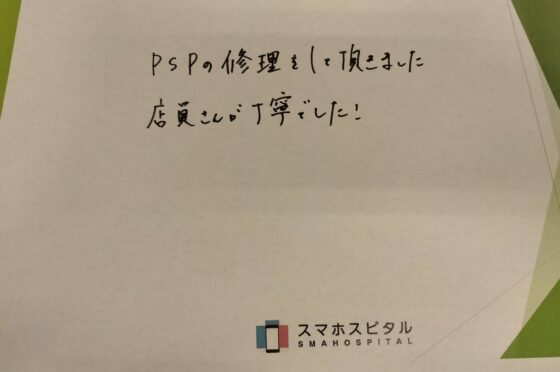 PSPの修理をして頂きました
店員さんが丁寧でした!
スマホスピタル
SMAHOSPITAL